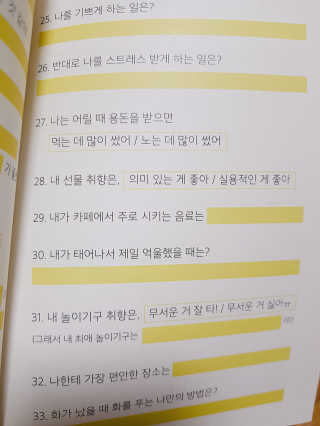 25. 나를 기쁘게 하는 일은?
26. 반대로 나를 스트레스 받게 하는 일은?
27. 나는 어릴 때 용돈을 받으면
먹는 데 많이 썼어 / 노는 데 많이 썼어
28. 내 선물 취향은, 의미 있는 게 좋아 / 실용적인 게 좋아
29. 내가 카페에서 주로 시키는 음료는
30. 내가 태어나서 제일 억울했을 때는?
31. 내 놀이기구 취향은, 무서운 거 잘 타! / 무서운 거 싫어ㅠ
(그래서 내 최애 놀이기구는
32. 나한테 가장 편안한 장소는
33. 화가 났을 때 화를 푸는 나만의 방법은?